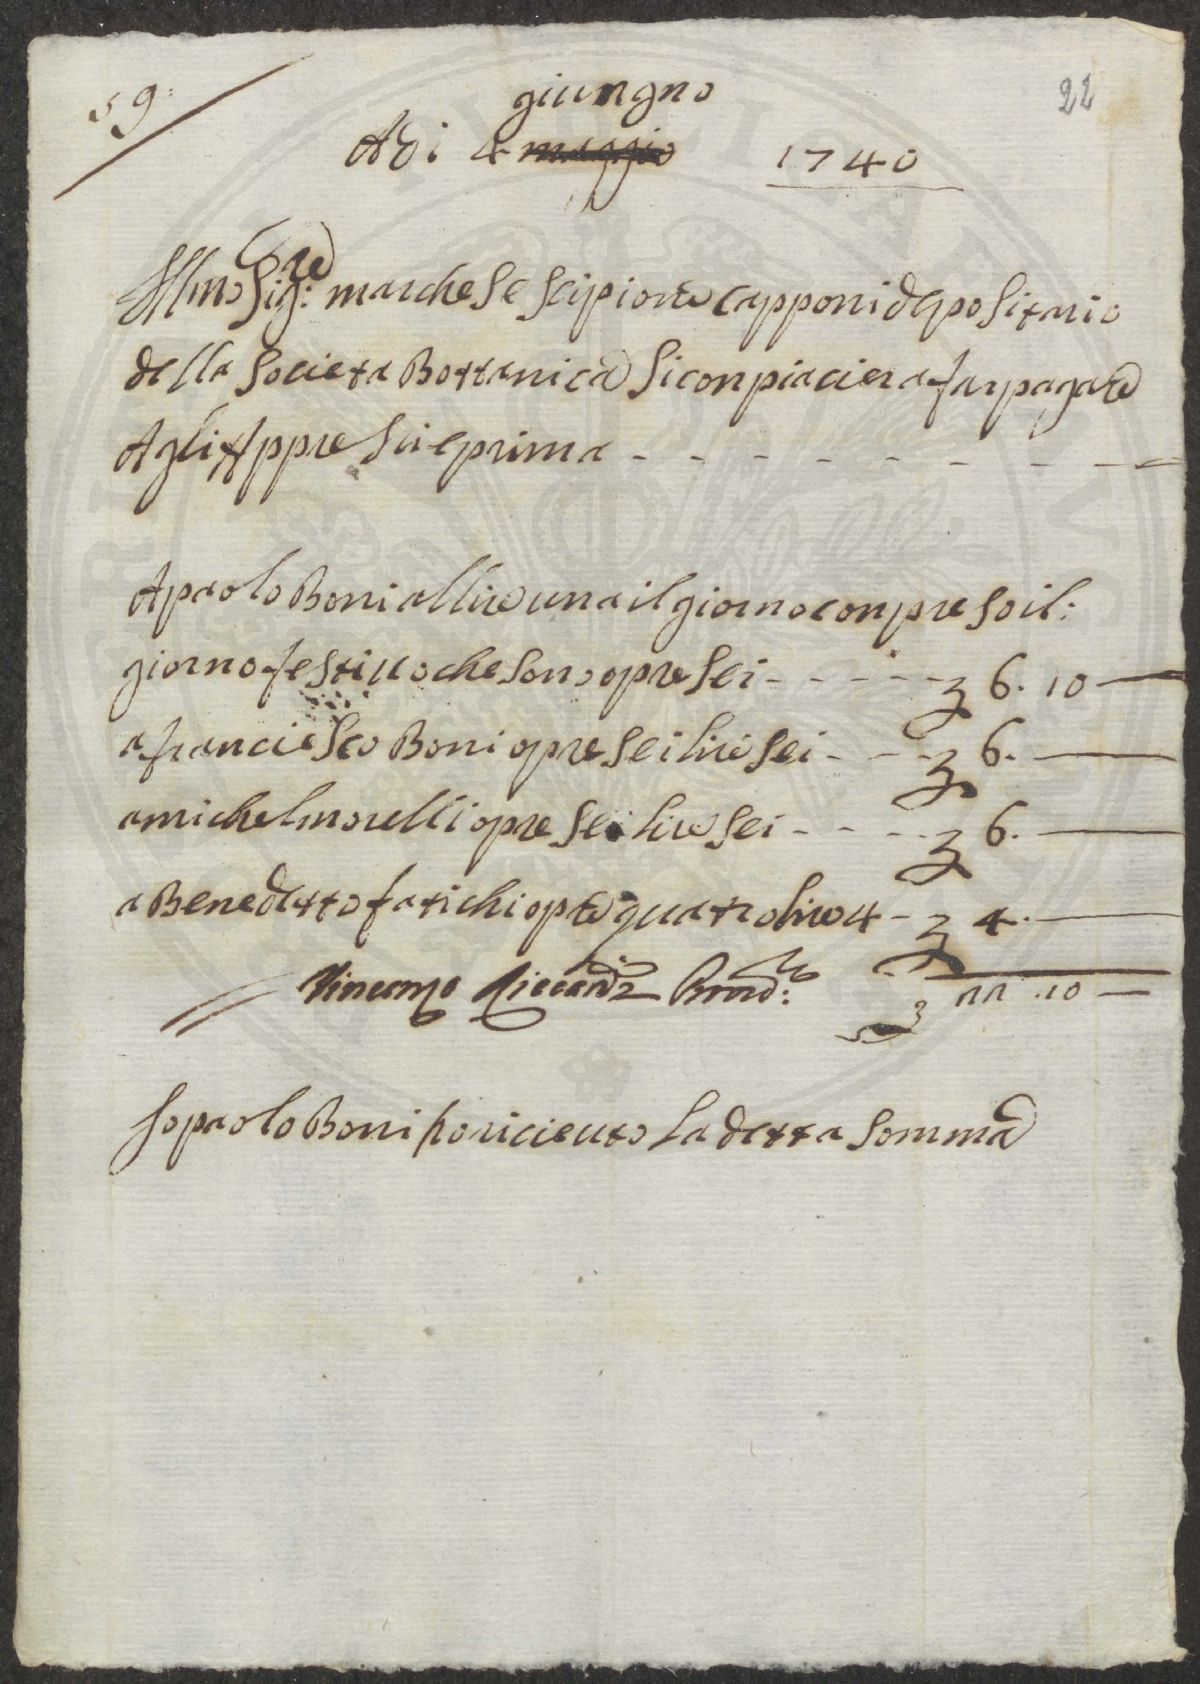 59: 22
giungno
Adi 4 maggio 1740
Illmo Sig:re marchese scipione capponi depositario
della Societa Bottanica Si conpiaciera far pagare
Agli Appresi e prima - - - - - - - -
A paolo Boni allire una il giorno conpreso il:
giorno festiuo che sono opre sei - - - - - 6. 10 —
a franciesco Boni opre sei lire sei - - - 6. —
a michel morelli opre sei lire sei - - - - 6. —
a Benedetto fatichi opre quatro lire 4 - 4. —
Vincenzo 22 .10 —
Io paolo Boni ho riceuto La detta Somma